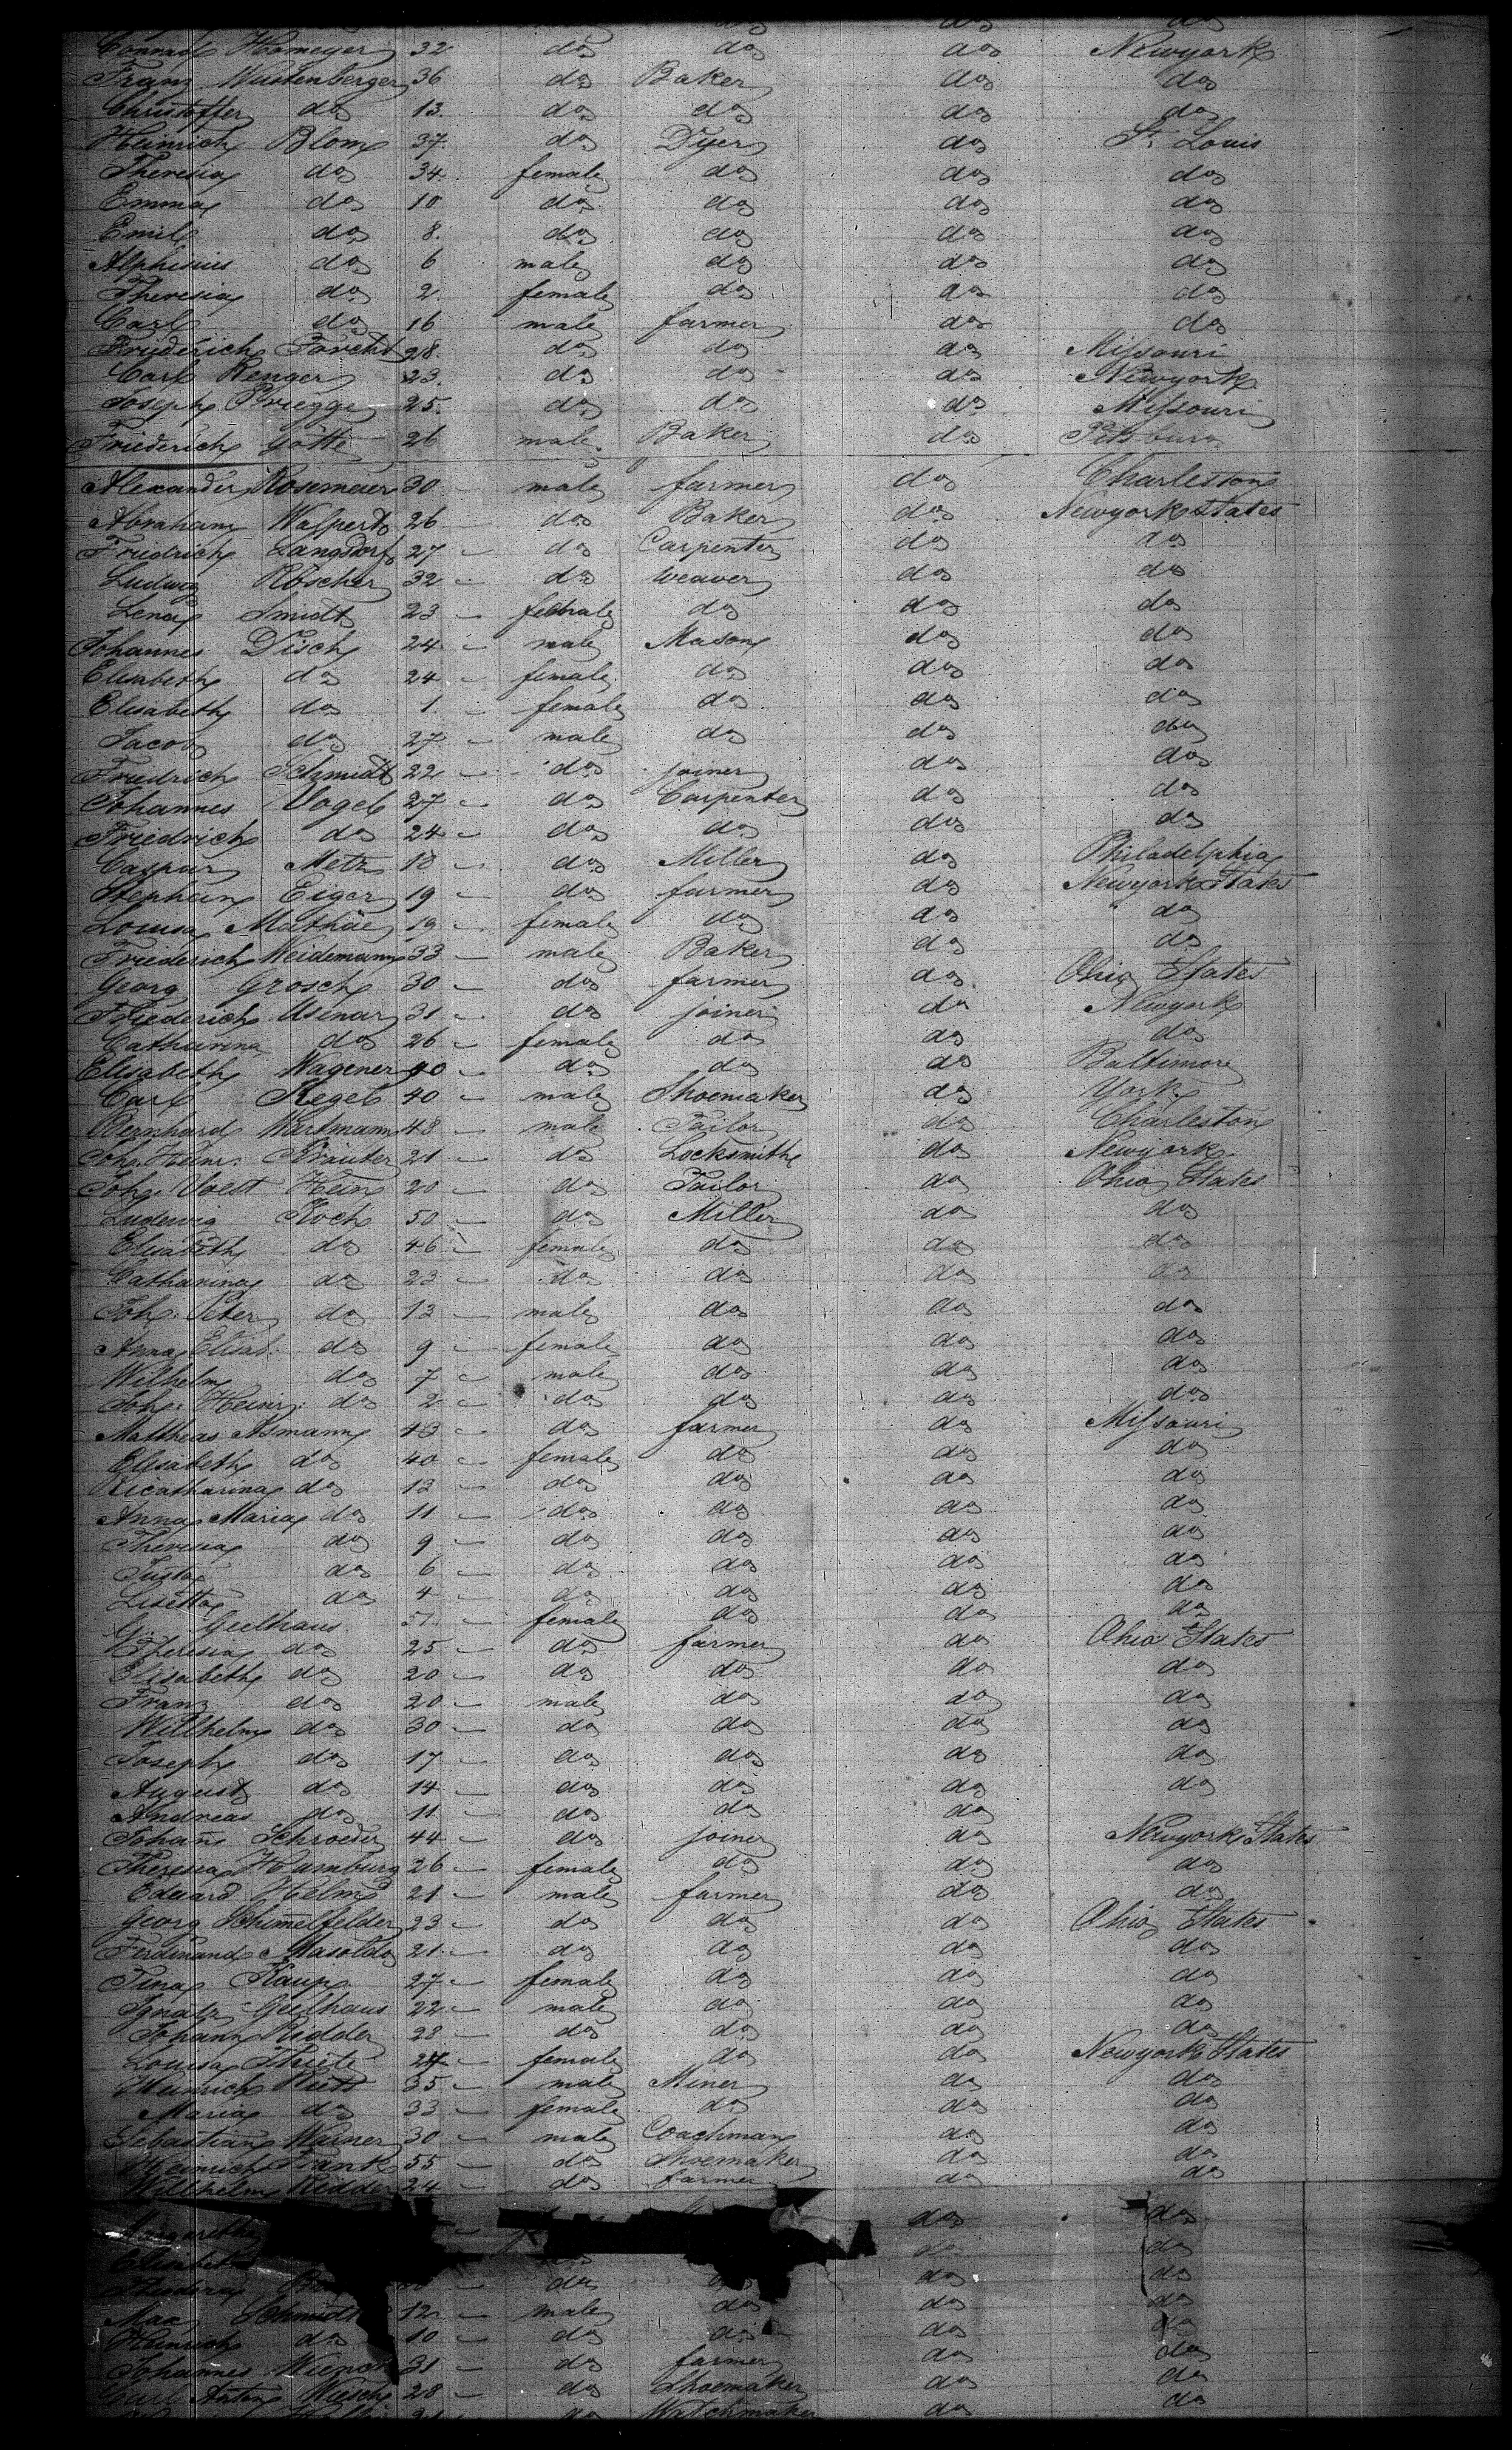 do do do do
Conrad Homeyer 32 do do do Newyork
Franz Wustenberger 36 do Baker do do
Christoffer do 13. do do do do
Heinrich Blom 37. do Dyer do St. Louis
Theresia do 34. female do do do
Emma do 10 do do do do
Emile do 8. do do do do
Alphisius do 6 male do do do
Theresia do 2. female do do do
Carl do 16 male farmer do do
Friederich 28. do do do Missouri
Carl Renger 23. do do do Newyork
Joseph Briegge 25. do do do Missouri
Friederich Götte 26 male Baker do Pitsburg
Alexander Rosemeier 30 – male farmer do Charleston
Abraham Walpert 26 – do Baker do Newyork States
Friedrich Langsdorf 27 – do Carpenter do do
Ludwig Röscher 32 – do weaver do do
Lena Smidt 23 – female do do do
Johannes Disch 24 – male Mason do do
Elisabeth do 24 – female do do do
Elisabeth do 1. – female do do do
Jacob do 27 – male do do do
Friedrich Schmidt 22 – do joiner do do
Johannes Vogel 27 – do Carpenter do do
Friedrich do 24 – do do do do
Caspar Metz 18 – do Miller do Philadelphia
Stephan Eiger 19 – do farmer do Newyork States
Louisa Mathäe 19 – female do do do
Friederich Weidemann 33 – male Baker do do
Georg Grosch 30 – do farmer do Ohio States
Friederich Usenar 31 – do joiner do Newyork
Catharina do 26 – female do do do
Elisabeth Wagener 40 – do do do Baltimore
Carl Kegel 40 – male Shoemaker do York
Bernhard Wartmann 48 – male Tailor do Charleston
Joh. Heinr. Kräuter 21 – do Locksmith do Newyork
Joh. Voest Hein 20 – do Tailor do Ohio States
Ludewig Koch 50 – do Miller do do
Elisabeth do 46 – female do do do
Catharina do 23 – do do do do
Joh. Peter do 13 – male do do do
Anna Elisab. do 9 – female do do do
Wilhelm do 7 – male do do do
Joh. Heinr. do 2 – do do do do
Mattheas Asmann 43 – do farmer do Missouri
Elisabeth do 40 – female do do do
do 13 – do do do do
Anna Maria do 11 – do do do do
Theresia do 9 – do do do do
Justa do 6 – do do do do
Lisetta do 4 – do do do do
G. Geelhaus 51. – female do do do
Theresia do 25 – do farmer do Ohio States
Elisabeth do 20 – do do do do
Franz do 20 – male do do do
Willhelm do 30 – do do do do
Joseph do 17 – do do do do
August do 14 – do do do do
Andreas do 11 – do do do do
Johann Schroeder 44 – do joiner do Newyork States
Theresia Hamburg 26 – female do do do
Eduard Helm 21 – male farmer do do
Georg Schimelfelder 23 – do do do Ohio States
Ferdinand Masold 21 – do do do do
Tina Kaup 27 – female do do do
Ignatz Geelhaus 22 – male do do do
Johann Ridder 28 – do do do do
Louisa Thiele 24 – female do do Newyork States
Heinrich 35 – male Miner do do
Maria do 33 – female do do do
Sebastian Warner 30 – male Coachman do do
Heinrich Frank 55 – do Shoemaker do do
Willhelm Ridder 24 – do farmer do do
Margaretha do do
Elisabeth do do
do do do
Max Schmidt 12 – male do do do
Heinrich do 10 – do do do do
Johannes 31 – do farmer do do
Carl Anton Wiesch 28 – do Shoemaker do do
do Watchmaker do do